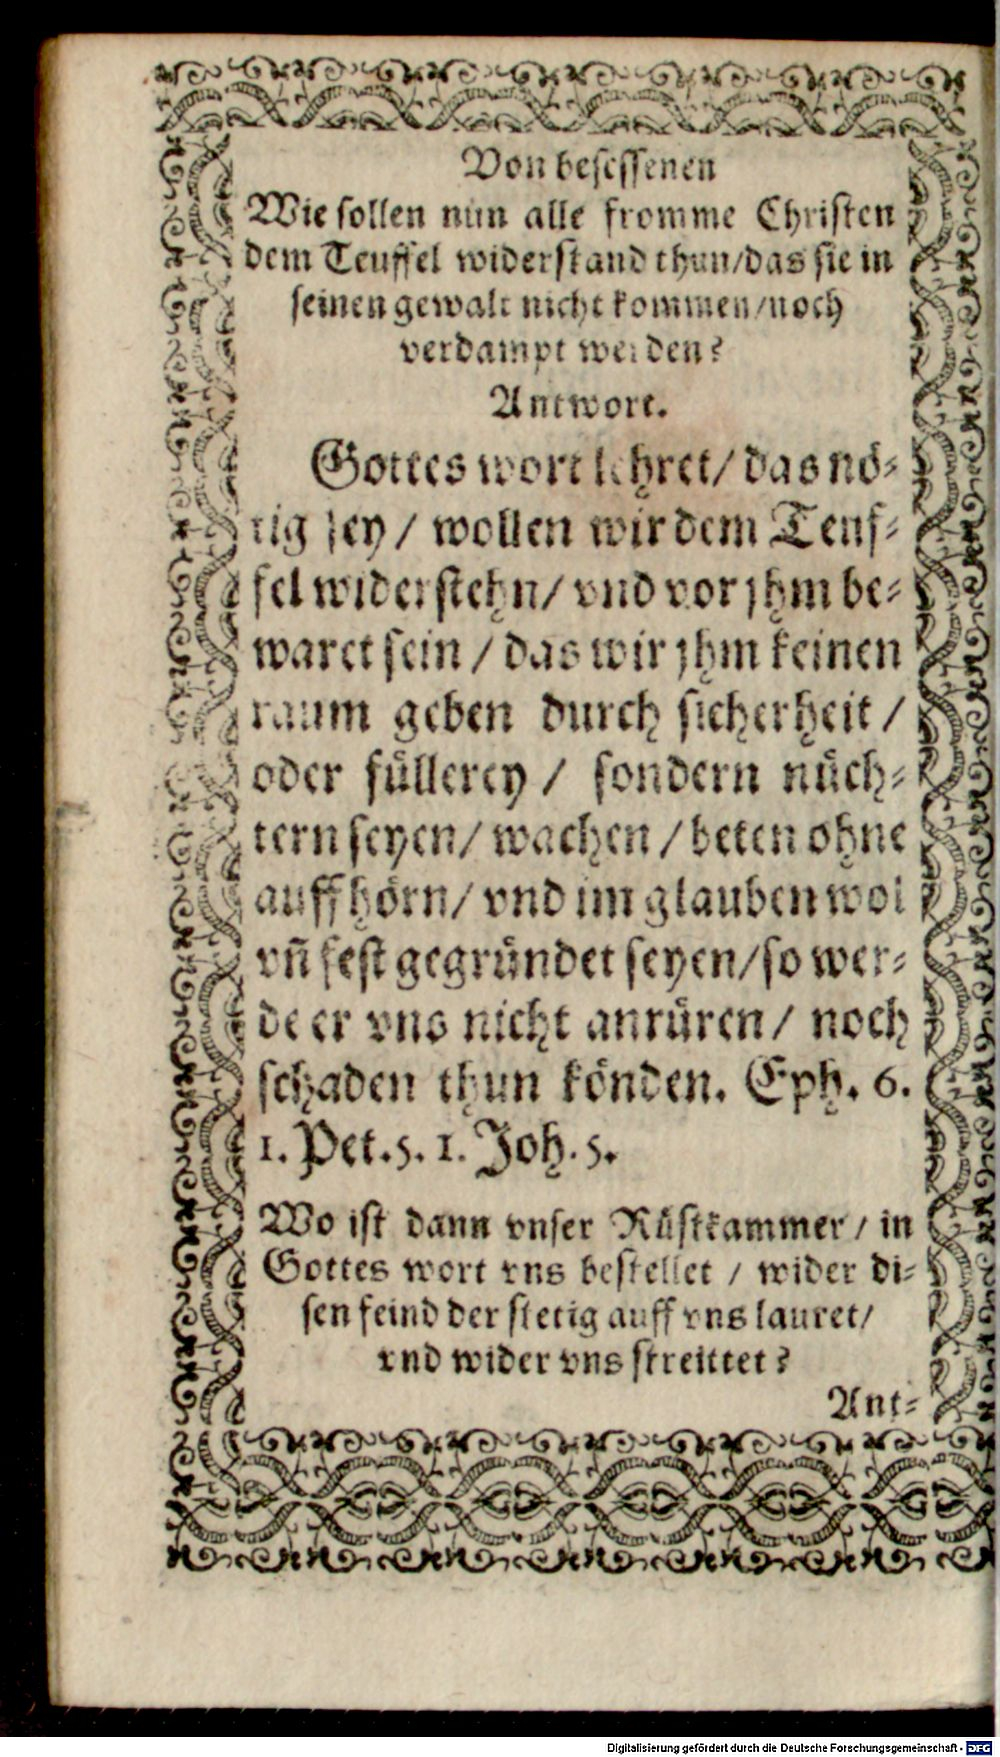 Von besessenen
Wie sollen nun alle fromme Christen
dem Teuffel widerstand thun/das sie in
seinen gewalt nicht kommen/noch
verdampt werden?
Antwort.
Gottes wort lehret/ das nö-
tig sey / wollen wir dem Teuf-
fel widerstehn/ vnd vor jhm be-
waret sein / das wir jhm keinen
raum geben durch sicherheit /
oder füllerey / sondern nüch-
tern seyen/ wachen / beten ohne
auffhörn/ vnd im glauben wol
vñ fest gegründet seyen/so wer-
de er vns nicht anrüren / noch
schaden thun könden. Eph. 6.
1. Pet. 5. 1. Joh. 5.
Wo ist dann vnser Rüstkammer / in
Gottes wort vns bestellet / wider di-
sen feind der stetig auff vns lauret/
vnd wider vns streittet?
Ant-
Digitalisierung gefördert durch die Deutsche Forschungsgemeinschaft - DFG